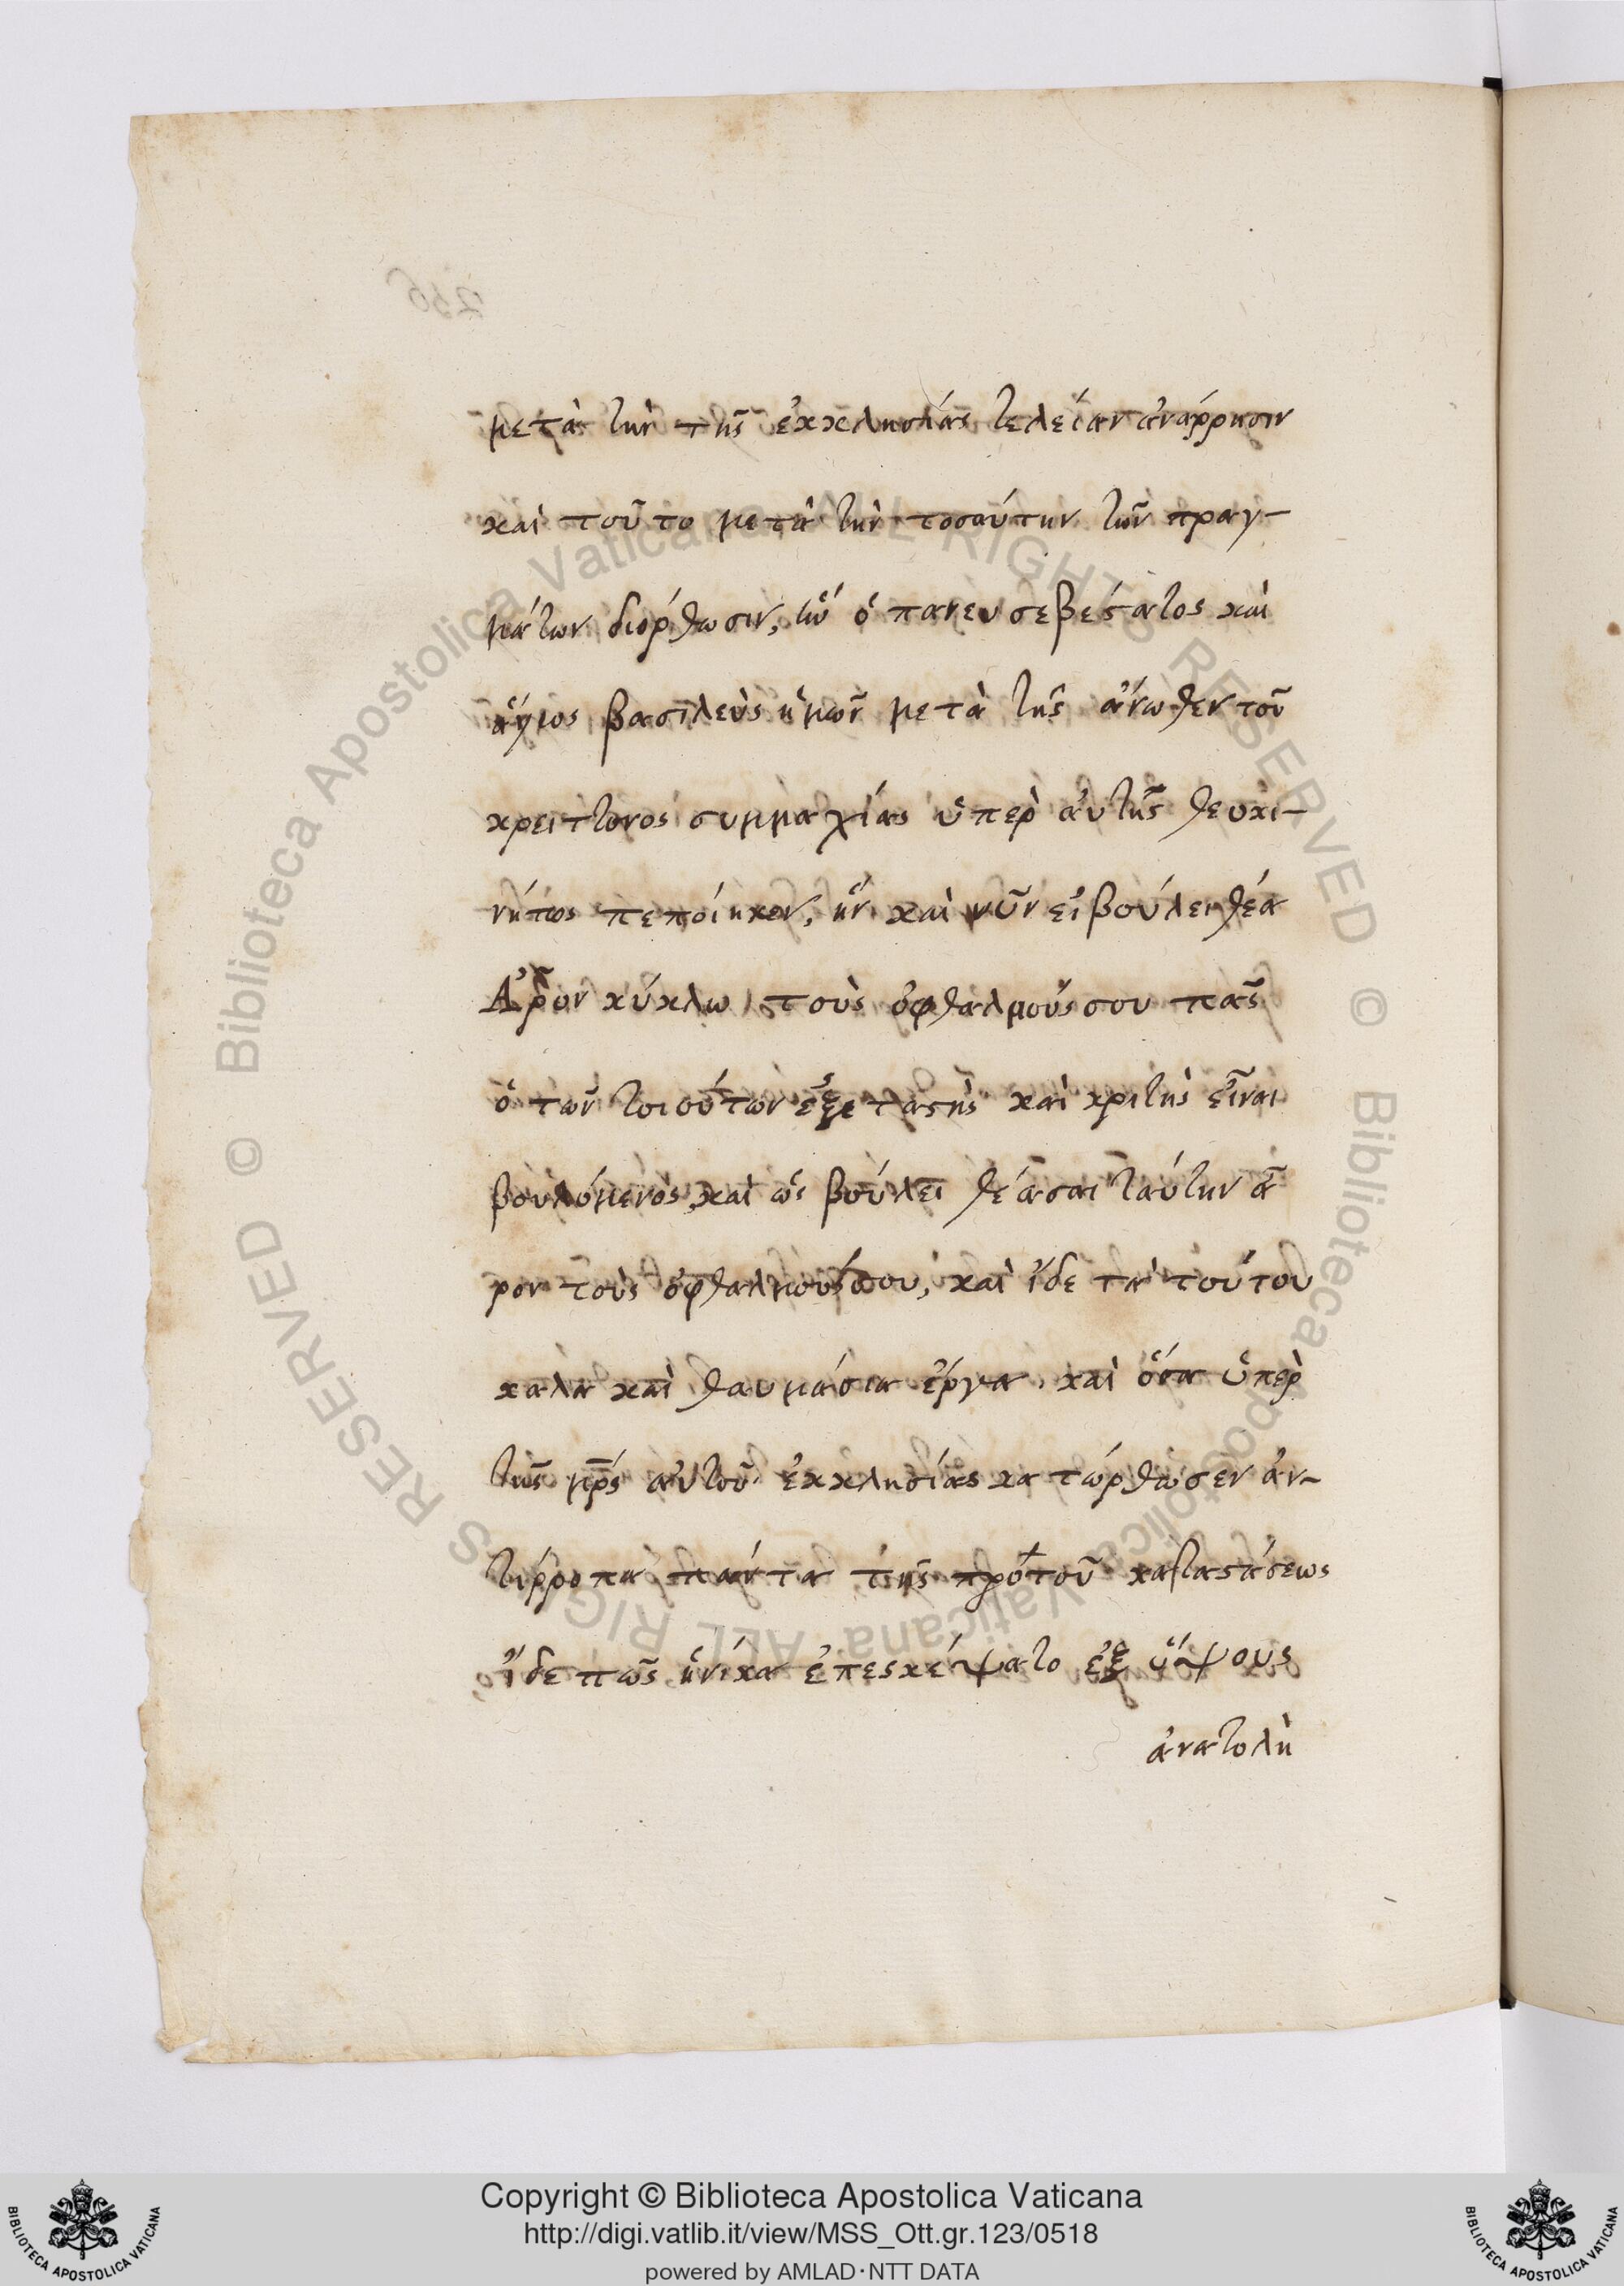 256
μετὰ τὴν τῆς ἐκκλησίας τελείαν ἀνάρρησιν
καὶ τοῦτο μετὰ τὴν τοσαύτην τῶν πραγ-
μάτων διόρθωσιν, ἣν ὁ πανευσεβέστατος καὶ
ἅγιος βασιλεὺς ἡμῶν μετὰ τῆς ἄνωθεν τοῦ
κρείττονος συμμαχίας ὑπὲρ αὐτῆς θεοκι-
νήτως πεποίηκεν, ἣν καὶ νῦν εἰ βούλει θέα
Ἆρον κύκλω τοὺς ὀφθαλμούς σου πᾶς
ὁ τῶν τοιούτων ἐξεταστὴς καὶ κριτὴς εἶναι
βουλόμενος, καὶ ὡς βούλει θέασαι ταύτην ἆ
ρον τοὺς ὀφθαλμούς σου, καὶ ἴδε τὰ τούτου
καλὰ καὶ θαυμάσια ἔργα, καὶ ὅσα ὑπὲρ
τῆς μρ̅ς αὐτοῦ ἐκκλησίας κατώρθωσεν ἀν-
τίρροπα πάντα τῆς πρὸ τοῦ καταστάσεως
ἴδε πῶς ἡνίκα ἐπεσκέψατο ἐξ ὕψους
ἀνατολὴ
© Biblioteca Apostolica Vaticana ALL RIGHTS RESERVED © Biblioteca Apostolica Vaticana ALL RIGHTS RESERVED
BIBLIOTECA APOSTOLICA VATICANA
Copyright © Biblioteca Apostolica Vaticana
http://digi.vatlib.it/view/MSS_Ott.gr.123/0518
powered by AMLAD·NTT DATA
BIBLIOTECA APOSTOLICA VATICANA